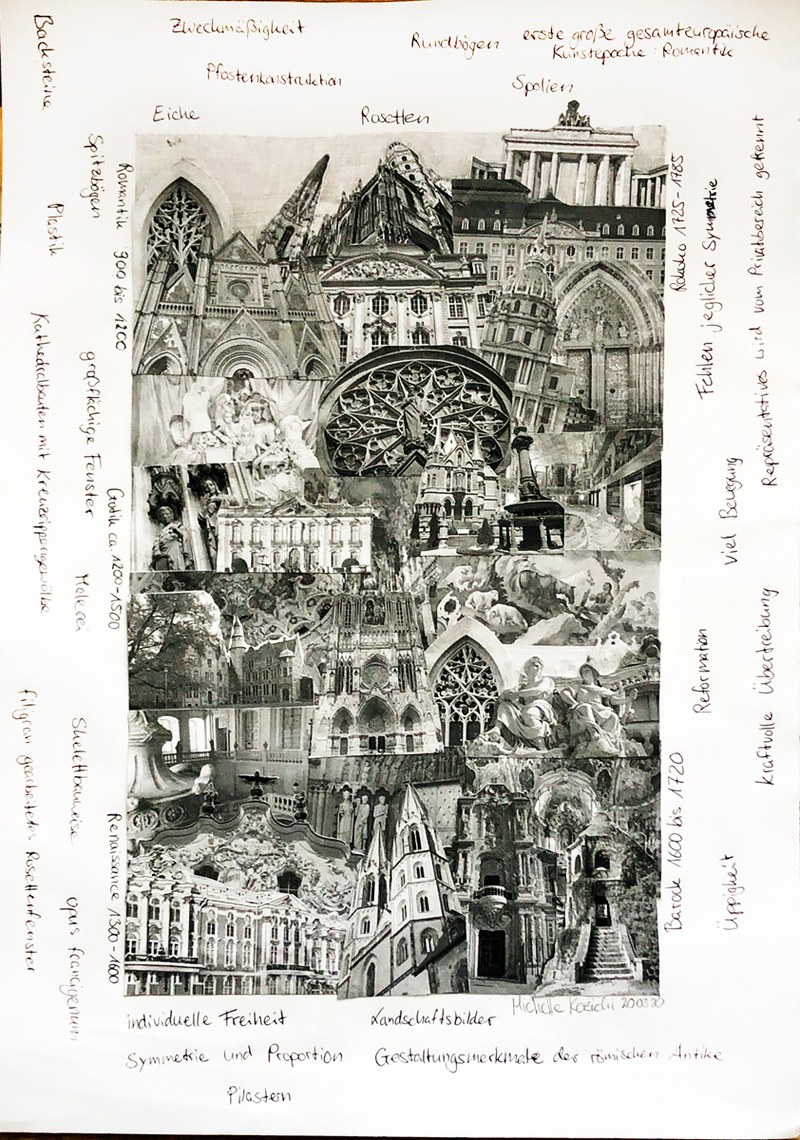 Zweckmäßigkeit
Rundbögen
erste große gesamteuropäische
Kunstepoche: Romantik
Pfostenkonstruktion
Spolien
Eiche
Rosetten
Backsteine
Spitzbögen
Plastik
Romantik 900 bis 1200
Kathedralbauten mit Kreuzrippengewölbe
großflächige Fenster
Gotik ca. 1200-1500
Malerei
filigran gearbeitete Rosettenfenster
Skelettbauweise
opus francigenum
Renaissance 1300-1600
Rokoko 1725-1785
Fehlen jeglicher Symmetrie
Repräsentatives wird vom Privatbereich getrennt
viel Bewegung
Reformation
kraftvolle Übertreibung
Barock 1600 bis 1720
Üppigkeit
Michelle
individuelle Freiheit
Landschaftsbilder
Symmetrie und Proportion
Gestaltungsmerkmale der römischen Antike
Pilastern